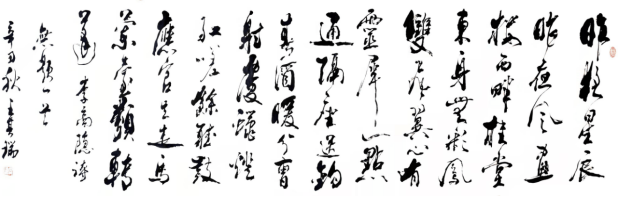 昨夜星辰
昨夜風畫
樓西畔桂堂
東身無彩鳳
雙飛翼心有
靈犀一點
通隔座送鉤
春酒暖分曹
射覆蠟燈
紅嗟餘聽鼓
應官去走馬
蘭臺類轉
蓬李商隱詩
無題一首
辛丑秋王